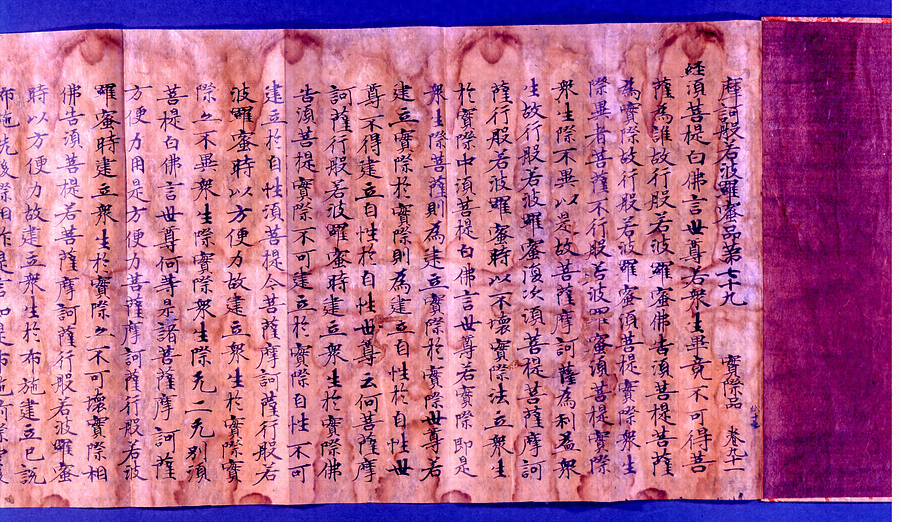 摩訶般若波羅蜜品第七十九 實際品 卷九十一
経須菩提白佛言世尊若衆生畢竟不可得菩
薩為誰故行般若波羅蜜佛告須菩提菩薩
為實際故行般若波羅蜜須菩提實際衆生
際異者菩薩不行般若波羅蜜須菩提實際
衆生際不異以是故菩薩摩訶薩為利益衆
生故行般若波羅蜜復次須菩提菩薩摩訶
薩行般若波羅蜜時以不壞實際法立衆生
於實際中須菩提白佛言世尊若實際即是
衆生際菩薩則為建立實際於實際世尊若
建立實際於實際則為建立自性於自性世
尊不得建立自性於自性世尊云何菩薩摩
訶薩行般若波羅蜜時建立衆生於實際佛
告須菩提實際不可建立於實際自性不可
建立於自性須菩提今菩薩摩訶薩行般若
波羅蜜時以方便力故建立衆生於實際實
際亦不異衆生際實際衆生際无二无別須
菩提白佛言世尊何等是諸菩薩摩訶薩
方便力用是方便力菩薩摩訶薩行般若波
羅蜜時建立衆生於實際亦不可壞實際相
佛告須菩提若菩薩摩訶薩行般若波羅蜜
時以方便力故建立衆生於布施建立已說
布施先後際相作是言如是布施前際空後